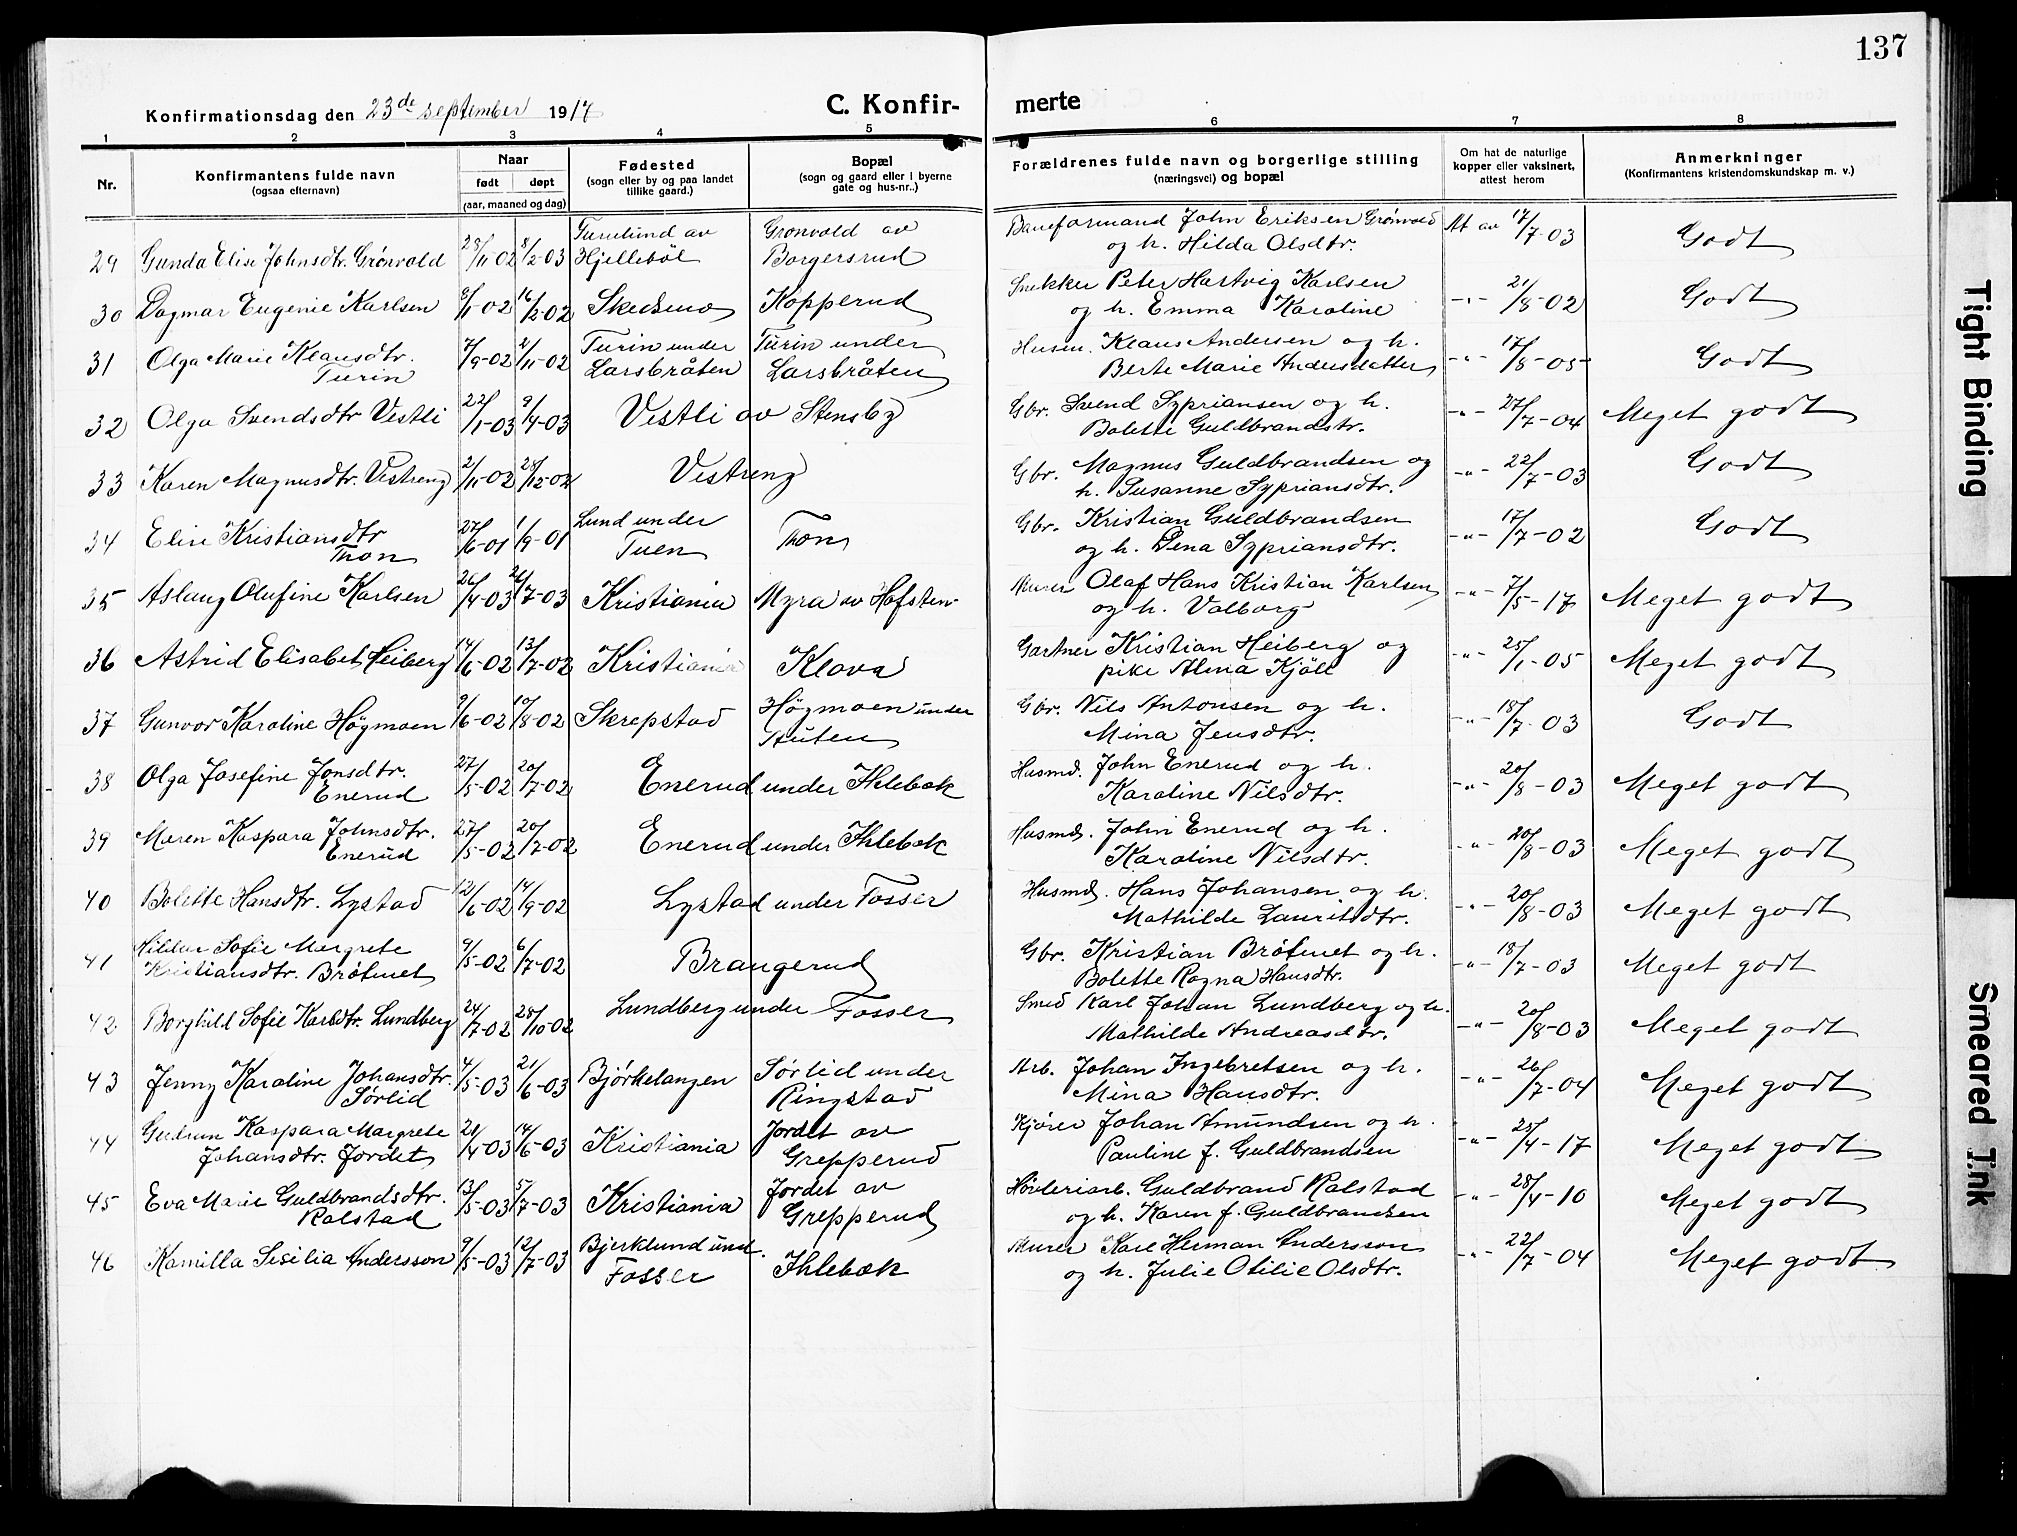 137
Konfirmationsdag den 23de september 1917
C. Konfir-
merte
1 2 3 4 5 6 7 8
Nr.
Konfirmantens fulde navn
(ogsaa efternavn)
Naar
født døpt
(aar, maaned og dag)
Fødested
(sogn eller by og paa landet
tillike gaard.)
Bopæl
(sogn og gaard eller i byerne
gate og hus-nr..)
Forældrenes fulde navn og borgerlige stilling
(næringsvei) og bopæl
Om hat de naturlige
kopper eller vaksinert,
attest herom
Anmerkninger
(Konfirmantens kristendomskundskap m. v.)
29 Gunda Elise Johnsdtr. Grønvold 28/11-02 8/2-03 Turulund av Hjellebøl Grønvold av Borgersrud Baneformand John Eriksen Grønvold og h. Hilda Olsdtr. At av 17/7-03 Godt
30 Dagmar Eugenie Karlsen 8/1-02 16/2-02 Skedsmo Kopperud Snekker Peter Hartvig Karlsen og h. Emma Karoline -"- 21/8-02 Godt
31 Olga Marie Klausdtr. Turin 7/9-02 2/11-02 Turin under Larsbråten Turin under Larsbråten Husm. Klaus Andersen og h. Berte Marie Andersdatter -"- 17/8-05 Godt
32 Olga Svendsdtr Vestli 22/1-03 9/4-03 Vestli av Stensby Gbr. Svend Sypriansen og h. Bolette Guldbrandstr. -"- 27/7-04 Meget godt
33 Karen Magnusdtr. Vestreng 2/11-02 28/12-02 Vestreng Gbr. Magnus Guldbrandsen og h. Susanne Sypriansdtr. -"- 22/7-03 Godt
34 Elise Kristiansdtr Thon 27/6-01 1/9-01 Lund under Tuen Thon Gbr. Kristian Guldbrandsen og h. Lena Sypriansdtr. -"- 17/7-02 Godt
35 Aslaug Olufine Karlsen 26/4-03 26/7-03 Kristiania Myra av Hofsten Murer Olaf Hans Kristian Karlsen og h. Valborg -"- 7/5-17 Meget godt
36 Astrid Elisabet Heiberg 14/6-02 13/7-02 Kristiania Klova Gartner Kristian Heiberg og pike Alma Kjöll -"- 25/1-05 Meget godt
37 Gunvor Karoline Högmoen 9/6-02 10/8-02 Skrepstad Högmoen under Stuten Gbr. Nils Antonsen og h. Mina Jensdtr. -"- 18/7-03 Godt
38 Olga Josefine Jonsdtr. Enerud 27/5-02 20/7-02 Enerud under Ihlebæk Husmd. John Enerud og h. Karoline Nilsdtr. -"- 20/8-03 Meget godt
39 Maren Kaspara Johnsdtr. Enerud 27/5-02 20/7-02 Enerud under Ihlebæk Husmd. John Enerud og h. Karoline Nilsdtr. -"- 20/8-03 Meget godt
40 Bolette Hansdtr. Lystad 12/6-02 14/9-02 Lystad under Fosser Husmd. Hans Johansen og h. Mathilde Lauritsdtr. -"- 20/8-03 Meget godt
41 Hildur Sofie Margrete Kristiansdtr. Bråtnet 9/5-02 6/7-02 Brangerud Gbr. Kristian Bråtnet og h. Bolette Ragna Hansdtr. -"- 18/7-03 Meget godt
42 Borghild Sofie Karlsdtr. Lundberg 24/7-02 28/10-02 Lundberg under Fosser Smed Karl Johan Lundberg og h. Mathilde Andreasdtr. -"- 20/8-03 Meget godt
43 Jenny Karoline Johansdtr. Sørlid 4/5-03 21/6-03 Bjørkelangen Sørlid under Ringstad Arb. Johan Ingebretsen og h. Mina Hansdtr. -"- 26/7-04 Meget godt
44 Gudrun Kaspara Margrete Johansdtr. Jordet 21/4-03 14/6-03 Kristiania Jordet av Grepperud Kjører Johan Amundsen og h. Pauline f. Guldbrandsen -"- 25/4-17 Meget godt
45 Eva Marie Guldbrandsdtr. Ralstad 13/5-03 5/7-03 Kristiania Jordet av Grepperud Høvleriarb. Guldbrand Ralstad og h. Karen f. Guldbrandsen -"- 28/4-10 Meget godt
46 Kamilla Sisilia Andersson 9/5-03 12/7-03 Bjerklund und. Fosser Ihlebæk Murer Karl Herman Andersson og h. Julie Otilie Olsdtr. -"- 22/7-04 Meget godt
Tight Binding
Smeared Ink